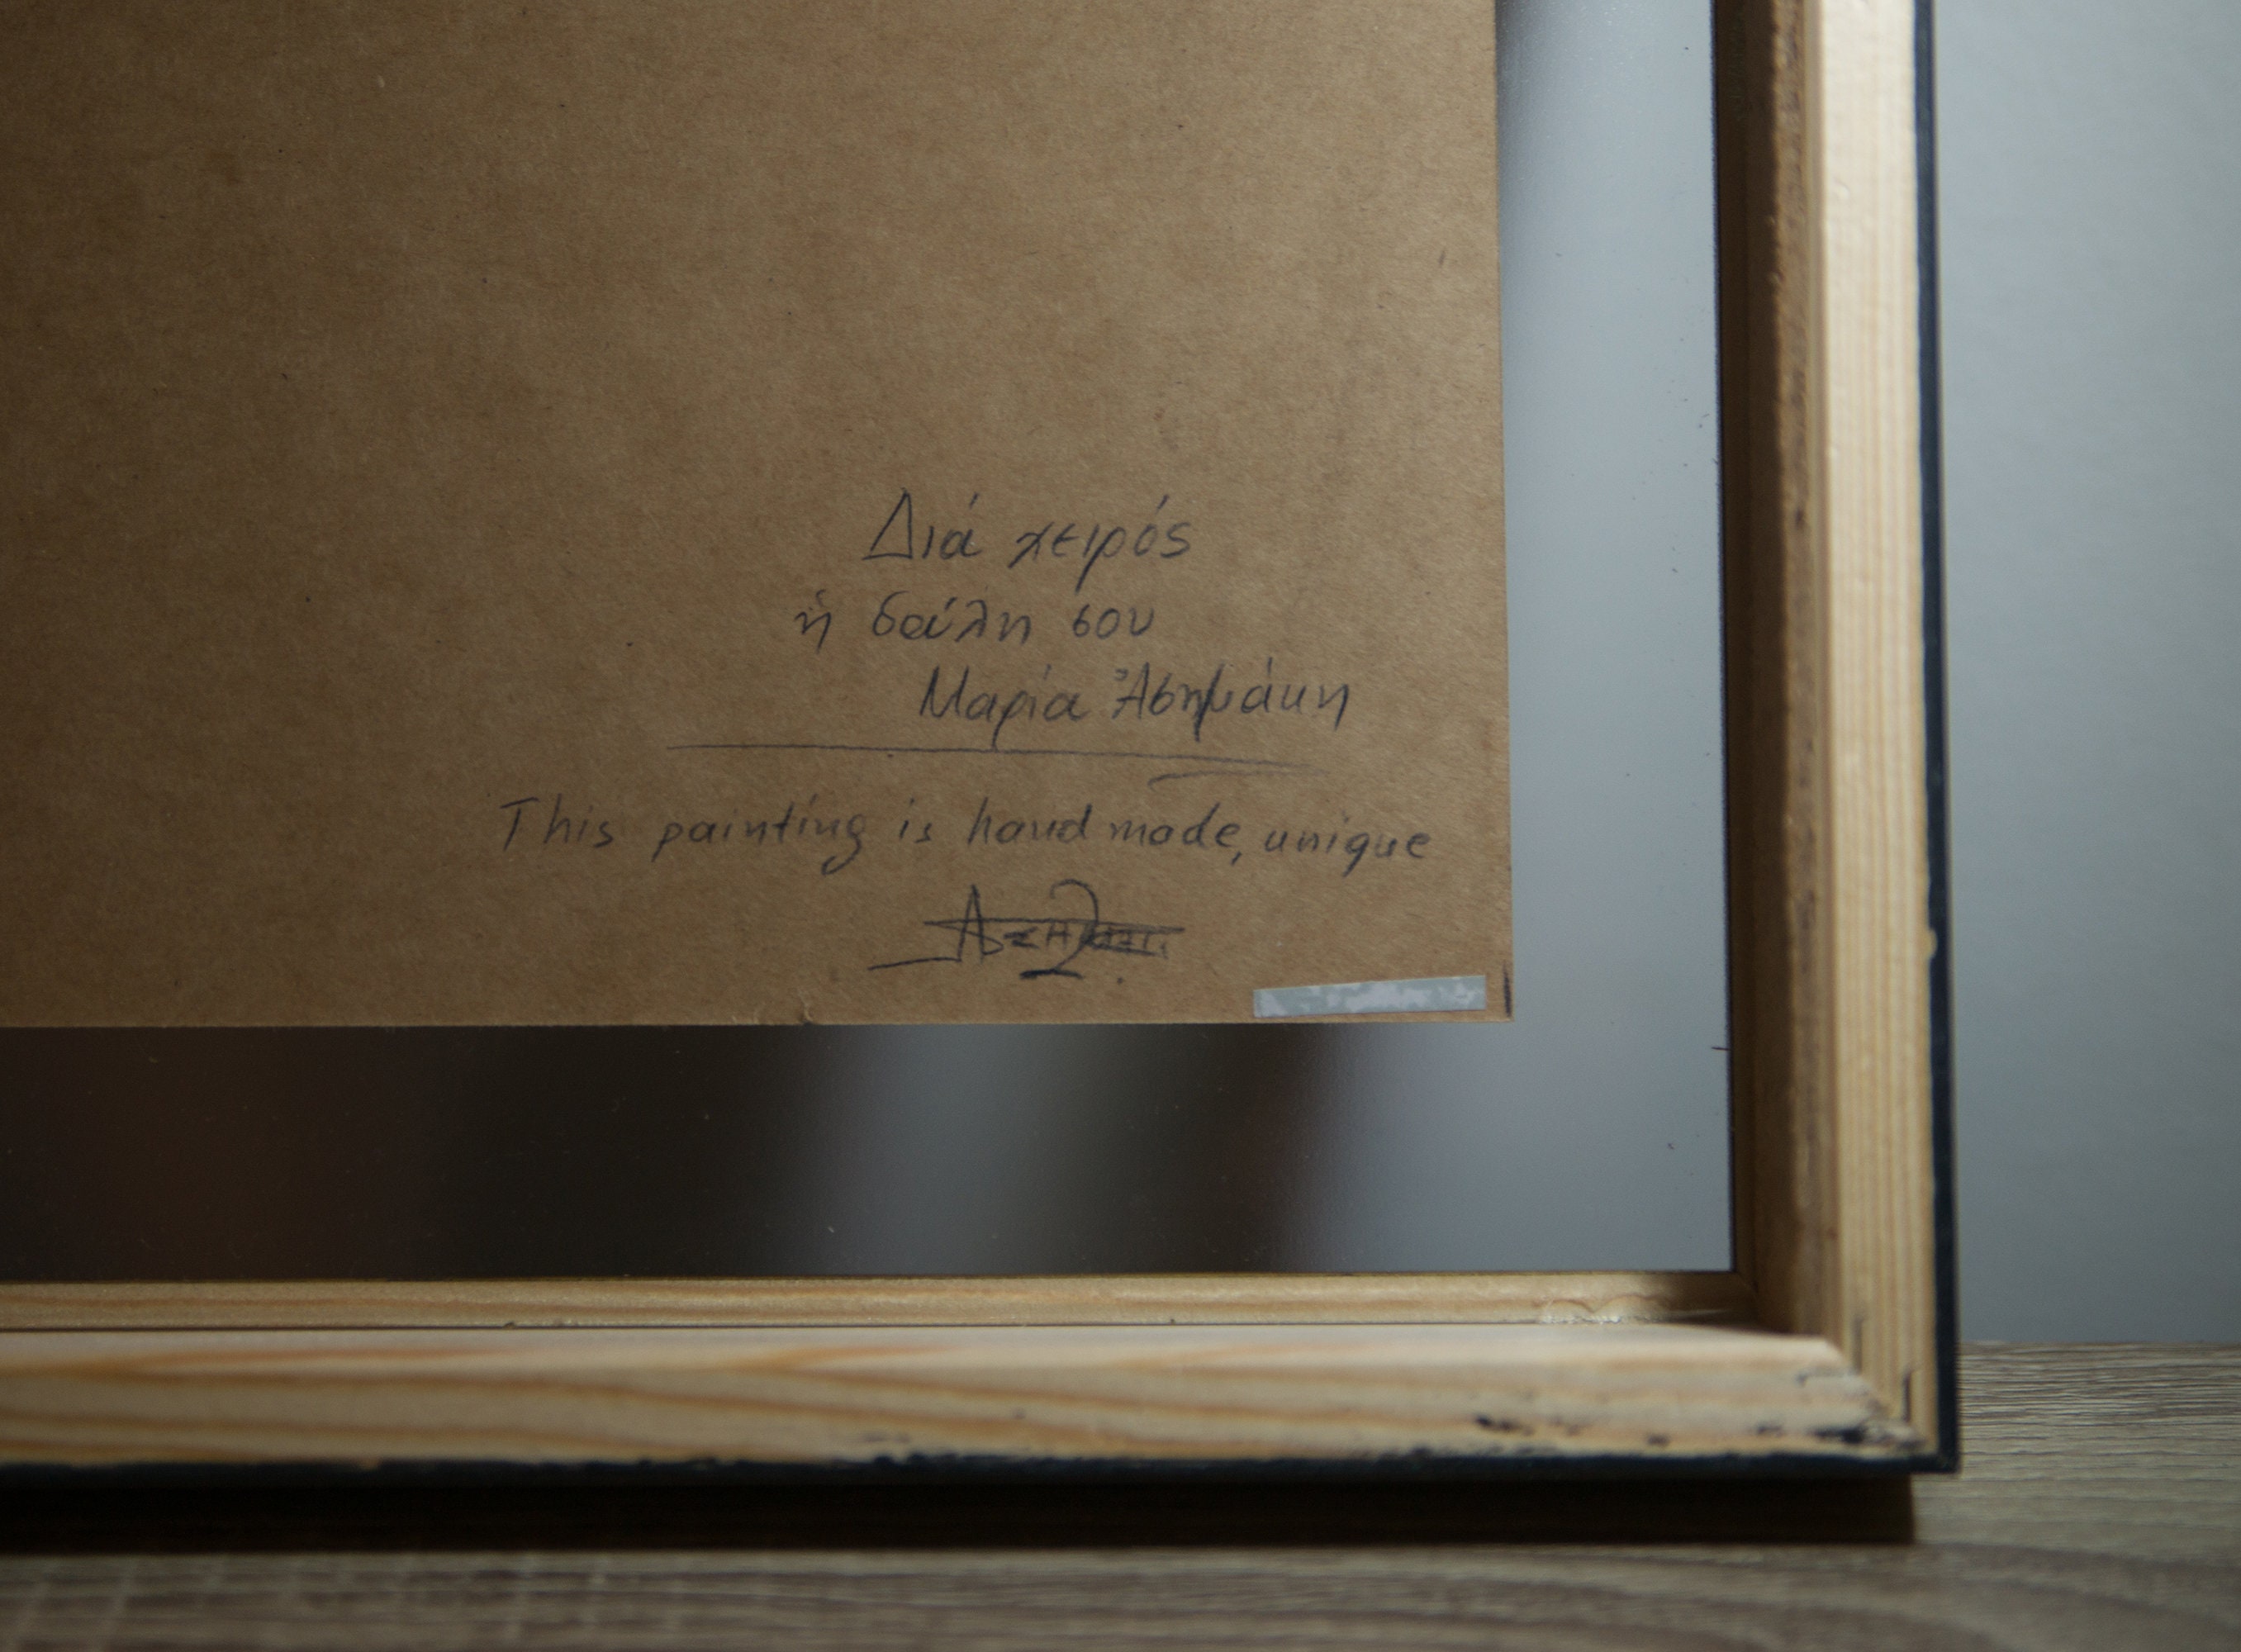 Διά χειρός
ἡ δούλη σου
Μαρία Ἀσημάκη
This painting is hand made, unique